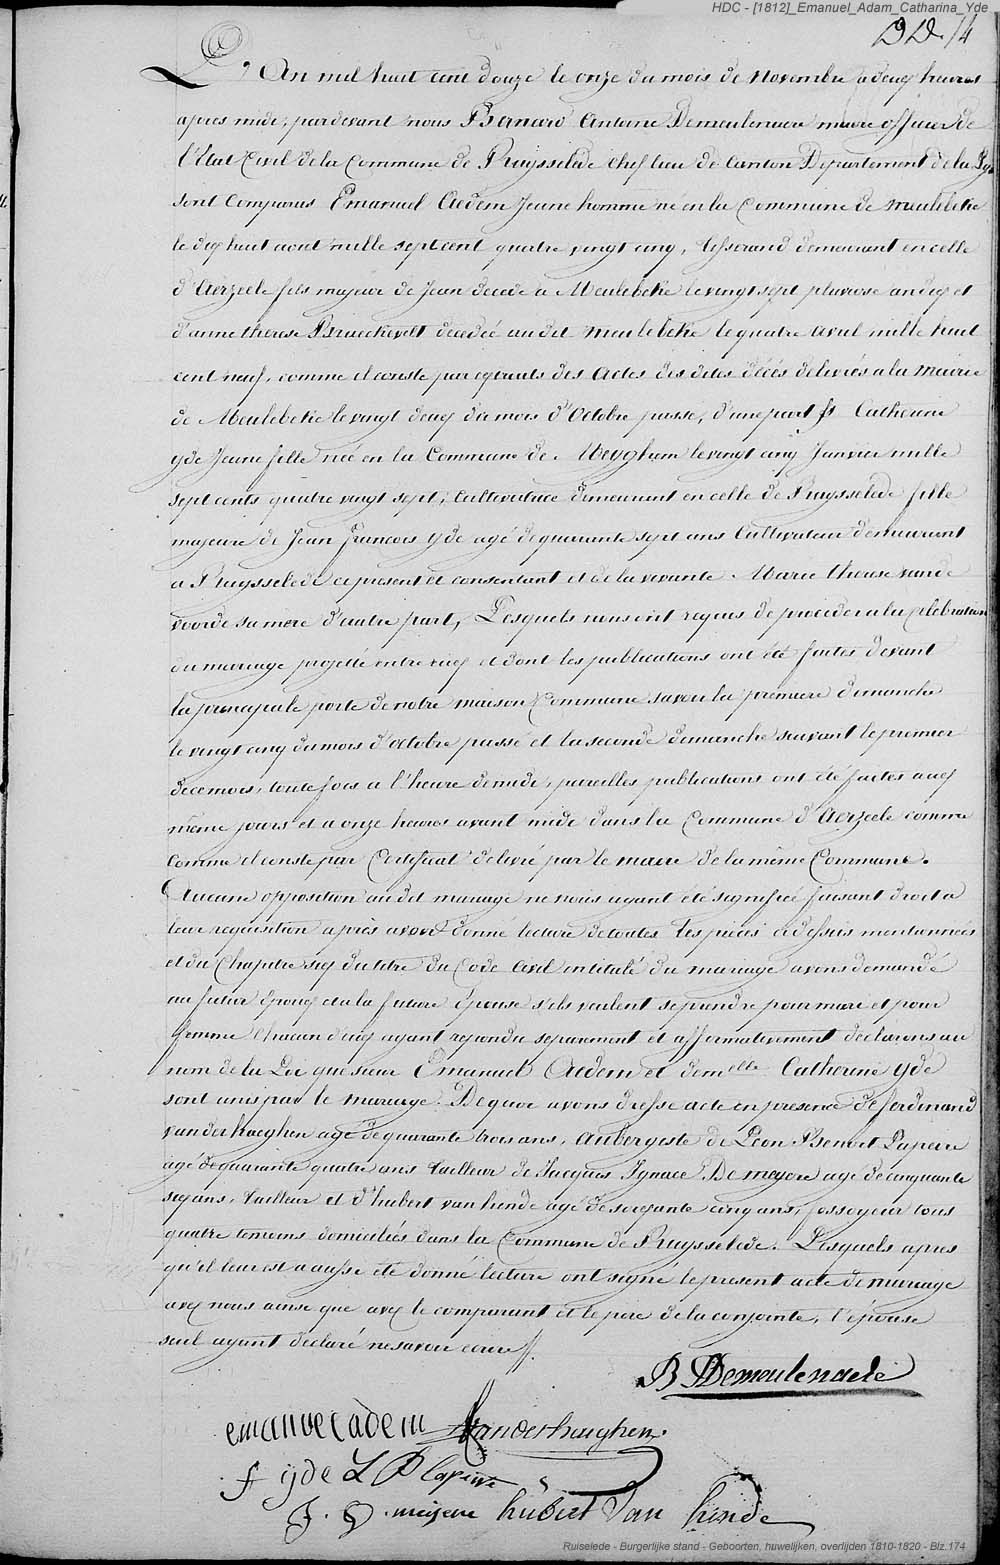 HDC - [1812]_Emanuel_Adam_Catharina_Yde
L'An mil huit cent douze le onze du mois de Novembre a deux heures
apres midi, pardevant nous Bernard Antoine Demeulenaere maire officier de
l'État Civil de la Commune de Ruysselede chef lieu de Canton Departement de la Lys
sont Comparus Emanuel Aedem Jeune homme né en la Commune de Meulebeke
le dix huit aout mille sept cent quatre vingt cinq, tisserand demeurant en celle
d'Aerzeele fils majeur de Jean decede a Meulebeke le vingt sept pluviose an dix et
d'anne therese Brueckevelt decedée au dit Meulebeke le quatre avril mille huit
cent neuf, comme il conste par extraits des Actes des dites décés delivrés a la Mairie
de Meulebeke le vingt deux du mois d'Octobre passe, d'une part et Catherine
yde Jeune fille née en la Commune de Meyghem le vingt cinq Janvier mille
sept cents quatre vingt sept, Cultivatrice demeurant en celle de Ruysselede fille
majeure de Jean francois yde agé de quarante sept ans Cultivateur demeurant
a Ruysselede ce present et consentant et de la vivante Marie therese vande
voorde sa mere d'autre part, Lesquels nous ont requis de proceder a la celebration
du mariage projetté entre eux et dont les publications ont été faites devant
la principale porte de notre maison Commune savoir la premiere dimanche
le vingt cinq du mois d'octobre passé et la seconde dimanche suivant le premier
de ce mois, toute fois a l'heure de midi, pareilles publications ont été faites aux
même jours et a onze heures avant midi dans la Commune d'Aerzeele comme
comme il conste par Certificat delivré par le maire de la même Commune.
Aucune opposition au dit mariage ne nous ayant été signifiée faisant droit a
leur requisition après avoir donné lecture de toutes les pieces ci dessus mentionnées
et du Chapitre six du titre du Code Civil intitulé du mariage avons demandé
au futur Epoux et a la future épouse s'ils veulent se prendre pour mari et pour
femme Chacun d'eux ayant repondu separement et affirmativement declarons au
nom de la Loi que sieur Emanuel Aedem et demelle Catherine yde
sont unis par le mariage. De quoi avons dresse acte en presence de ferdinand
vanderhaeghen agé de quarante trois ans, Aubergiste de Leon Benoit Lapeire
agé de quarante quatre ans tailleur de Jacques Ignace De meyere agé de cinquante
six ans, tailleur et d'hubert van hende agé de soixante cinq ans, fossoyeur tous
quatre temoins domiciliés dans la Commune de Ruysselede. Lesquels apres
qu'il leur est a aussi été donné lecture ont signé le present acte de mariage
avec nous ainsi que avec le comparant et le pere de la conjointe, l'épouse
seul ayant declaré ne savoir ecrire
B Demeulenaere
emanuel adem Vanderhaeghen
f yde L B lapeire
J. I. meijere hubert Van hende
Ruiselede - Burgerlijke stand - Geboorten, huwelijken, overlijden 1810-1820 - Blz.174